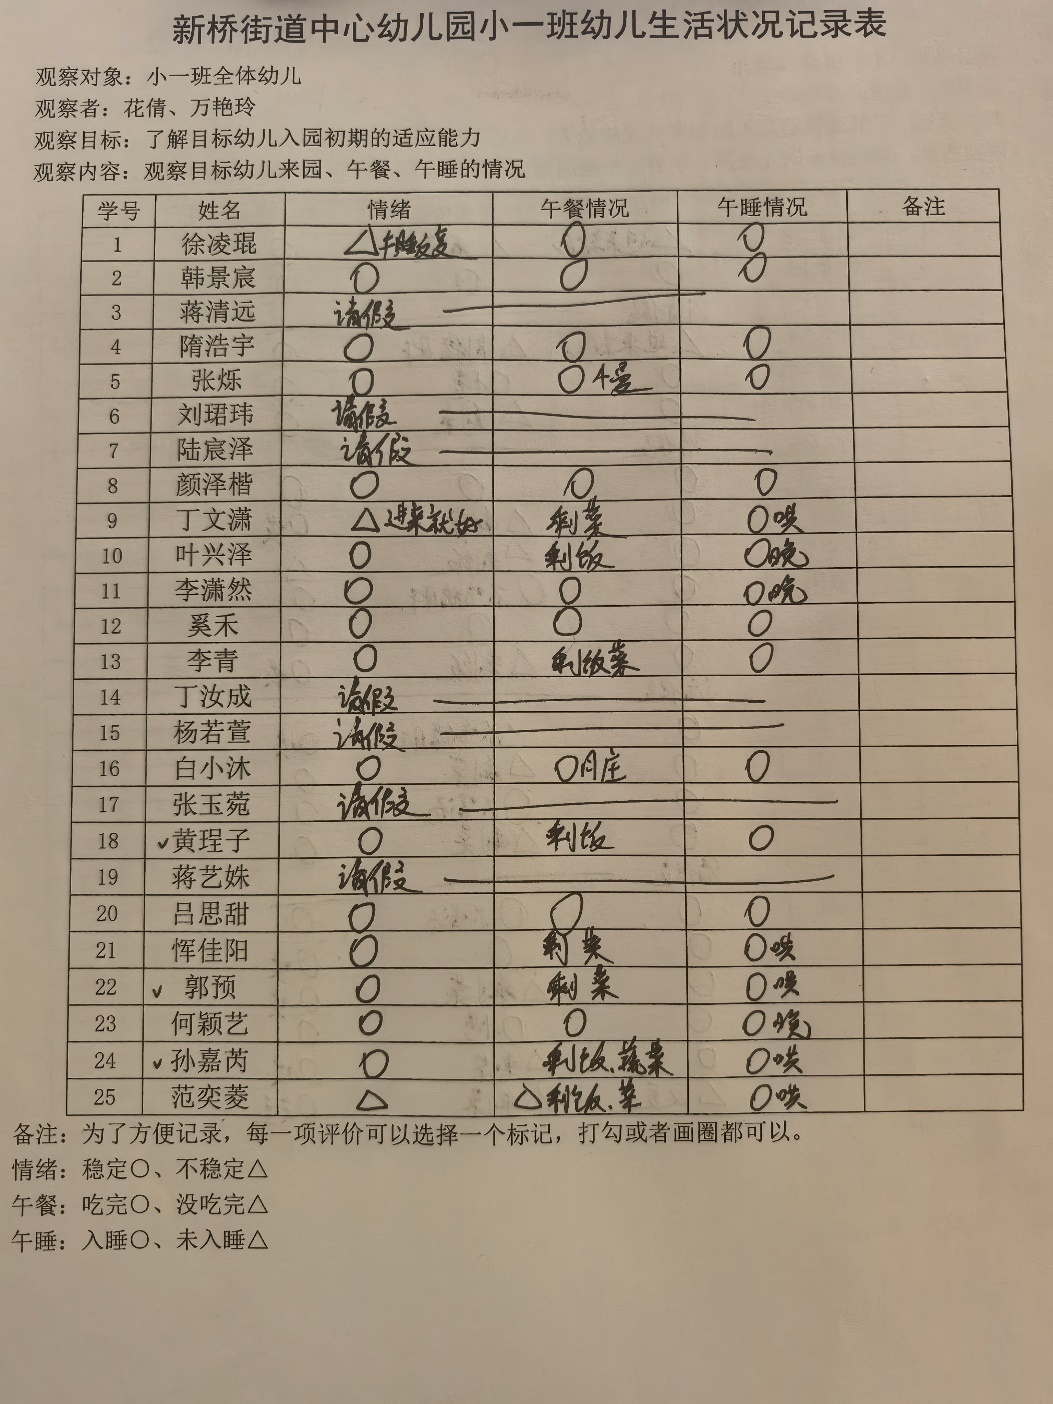 新桥街道中心幼儿园小一班幼儿生活状况记录表
观察对象：小一班全体幼儿
观察者：花倩、万艳玲
观察目标：了解目标幼儿入园初期的适应能力
观察内容：观察目标幼儿来园、午餐、午睡的情况
学号 姓名 情绪 午餐情况 午睡情况 备注
1 徐凌琨 △午睡反复 〇 〇
2 韩景宸 〇 〇 〇
3 蒋清远 请假
4 隋浩宇 〇 〇 〇
5 张烁 〇 〇 〇
6 刘珺玮 请假
7 陆宸泽 请假
8 颜泽楷 〇 〇 〇
9 丁文潇 △进来就好 剩菜 〇哄
10 叶兴泽 〇 剩饭 〇晚
11 李潇然 〇 〇 〇晚
12 奚禾 〇 〇 〇
13 李青 〇 剩饭菜 〇
14 丁汝成 请假
15 杨若萱 请假
16 白小沐 〇 〇 〇
17 张玉菀 请假
18 ✓黄珵子 〇 剩饭 〇
19 蒋艺姝 请假
20 吕思甜 〇 〇 〇
21 恽佳阳 〇 剩菜 〇哄
22 ✓ 郭预 〇 剩菜 〇哄
23 何颖艺 〇 〇 〇晚
24 ✓孙嘉芮 〇 剩饭、蔬菜 〇哄
25 范奕菱 △ △剩饭、菜 〇哄
备注：为了方便记录，每一项评价可以选择一个标记，打勾或者画圈都可以。
情绪：稳定〇、不稳定△
午餐：吃完〇、没吃完△
午睡：入睡〇、未入睡△